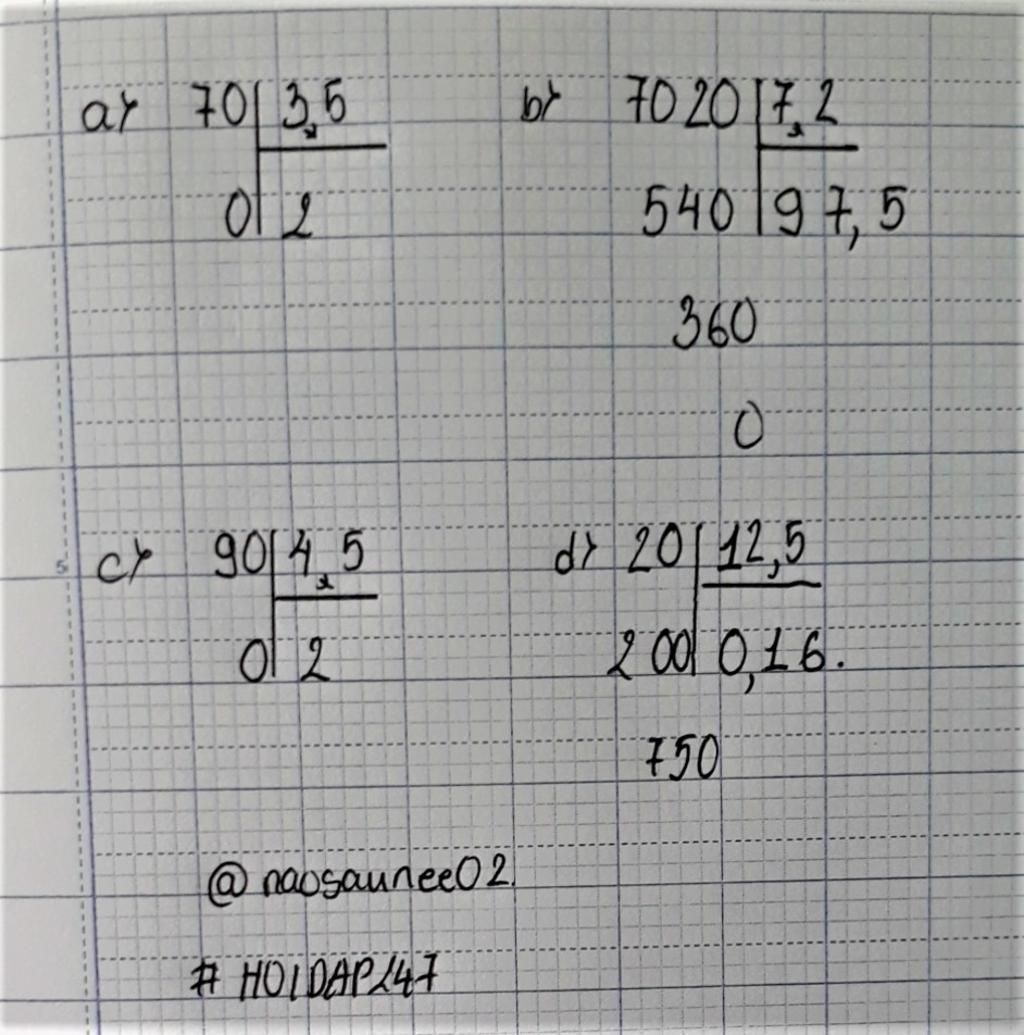 a) 70 3,5 b) 7020 7,2
0 2 540 97,5
360
0
c) 90 4,5 d) 20 12,5
0 2 200 0,16.
750
@naosaunee02.
# HOIDAP247